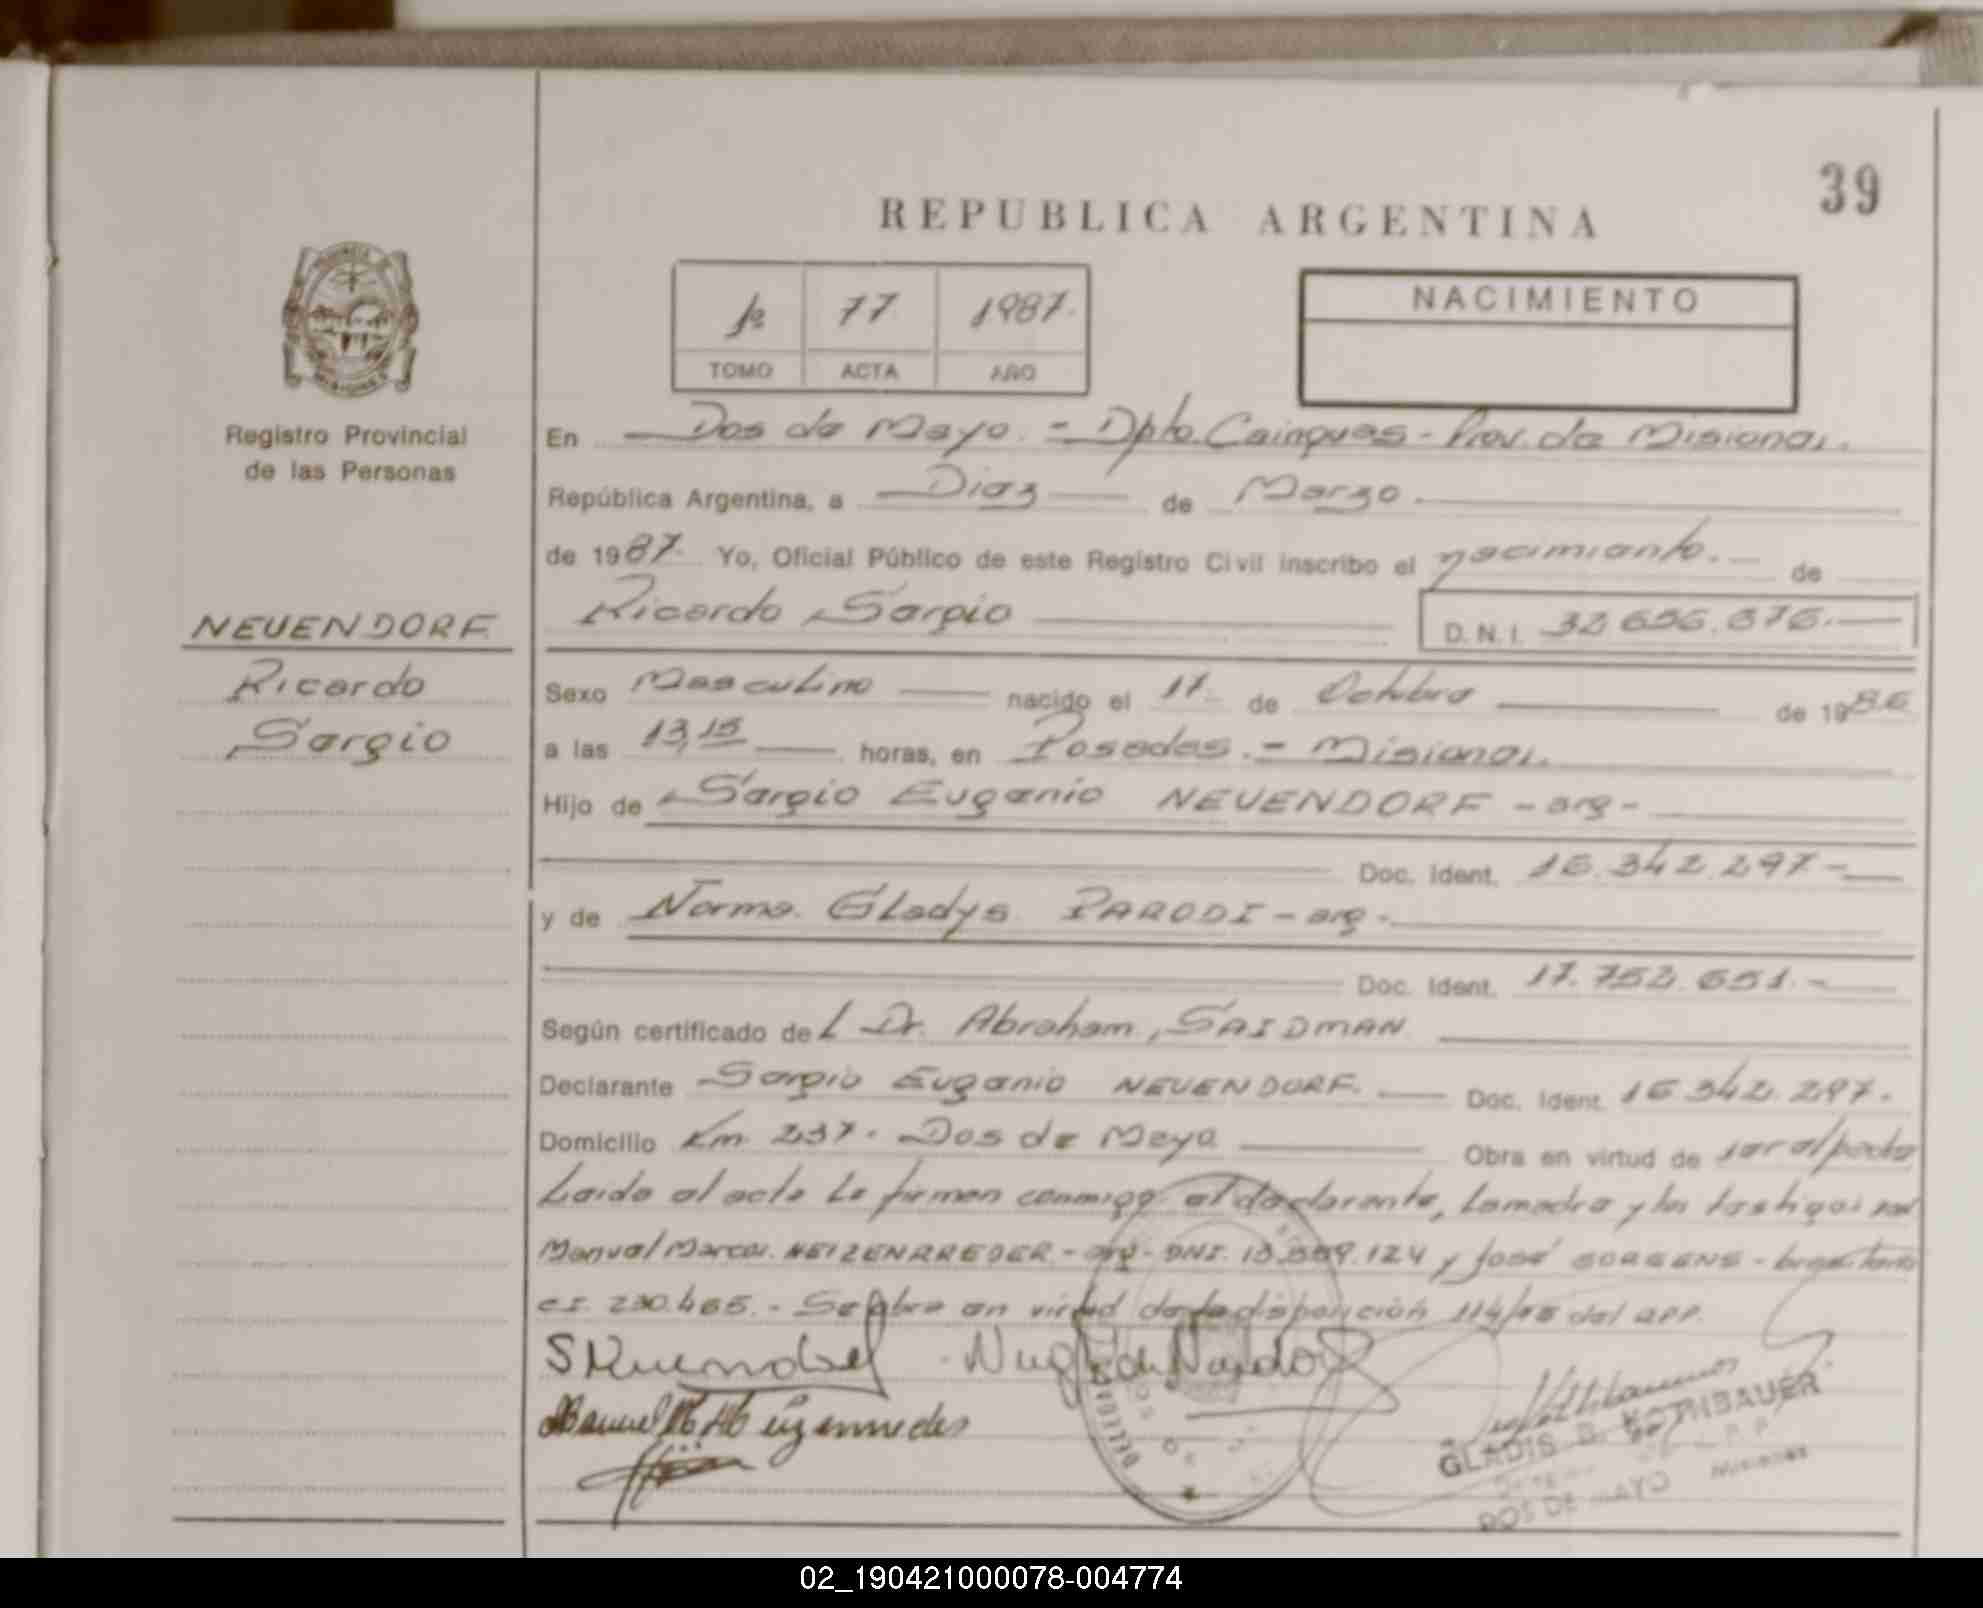 39
REPUBLICA ARGENTINA
1º 77 1987.
TOMO ACTA AÑO
NACIMIENTO
Registro Provincial
de las Personas
NEUENDORF
Ricardo
Sergio
En Dos de Mayo. - Dpto. Cainguas - Prov. de Misiones.
República Argentina, a Diez de Marzo.
de 1987. Yo, Oficial Público de este Registro Civil inscribo el nacimiento. de
Ricardo Sergio D.N.I. 32.656.876.-
Sexo Masculino nacido el 17. de Octubre de 1986
a las 13,15 horas, en Posadas. - Misiones.
Hijo de Sergio Eugenio NEUENDORF - arg -
Doc. Ident. 16.342.297 -
y de Norma Gladys PARODI - arg -
Doc. Ident. 17.752.651. -
Según certificado del Dr. Abraham, SAIDMAN
Declarante Sergio Eugenio NEUENDORF. Doc. Ident. 16.342.297.
Domicilio Km. 237. Dos de Mayo Obra en virtud de ser el padre
Leido el acta la firman conmigo el declarante, la madre y los testigos
Manuel Marcos NEIZENRREDER - arg - DNI. 13.559.124 y José BORGENS - brasilero
C.I. 230.465. - Se labra en virtud de la disposición 114/ del RPP.
GLADIS B. KOTHIBAUER
DOS DE MAYO Misiones
02_190421000078-004774